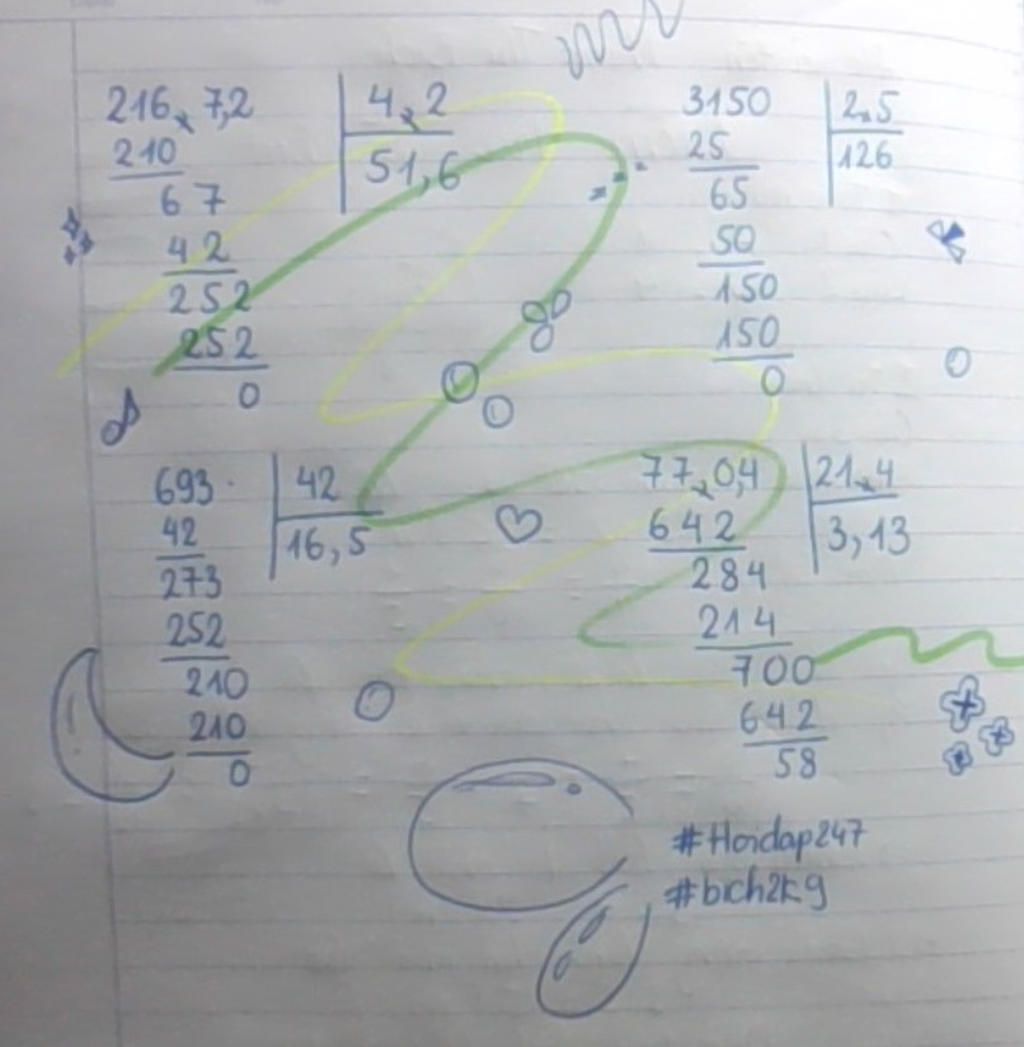 216,7,2 4,2
210 51,6
67
42
252
252
0
3150 2,5
25 126
65
50
150
150
0
693 42
42 16,5
273
252
210
210
0
77,0,4 21,4
642 3,13
284
214
700
642
58
#Hoidap247
#bich2k9